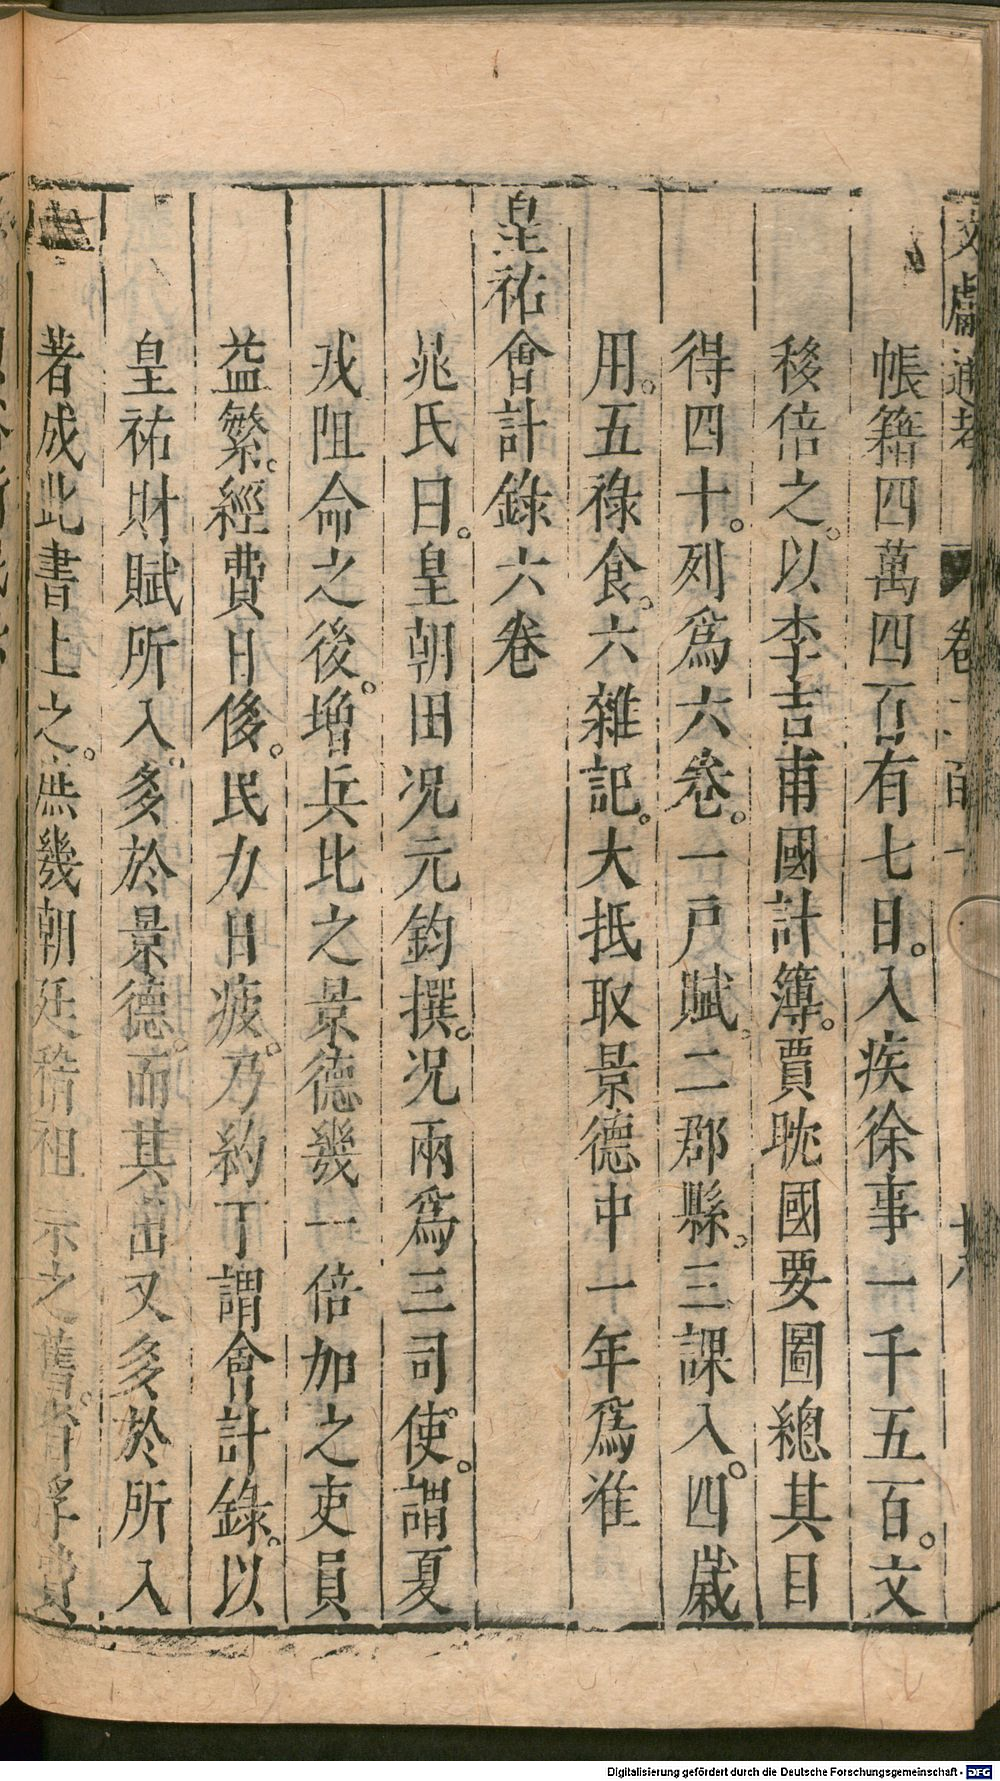 文獻通考 卷二百一 十八
帳籍四萬四百有七日。入疾徐事一千五百。文
移倍之。以李吉甫國計簿。賈耽國要圖總其目
得四十。列爲六卷。一戶賦。二郡縣。三課入。四歲
用。五祿食。六雜記。大抵取景德中一年爲准
皇祐會計錄六卷
晁氏曰。皇朝田况元鈞撰。况兩爲三司使。謂夏
戎阻命之後。增兵比之景德幾一倍加之吏員
益繁。經費日侈。民力日疲。乃約丁謂會計錄。以
皇祐財賦所入。多於景德。而其出又多於所入
著成此書上之。庶幾朝廷稽祖宗之舊。省浮費
Digitalisierung gefördert durch die Deutsche Forschungsgemeinschaft - DFG